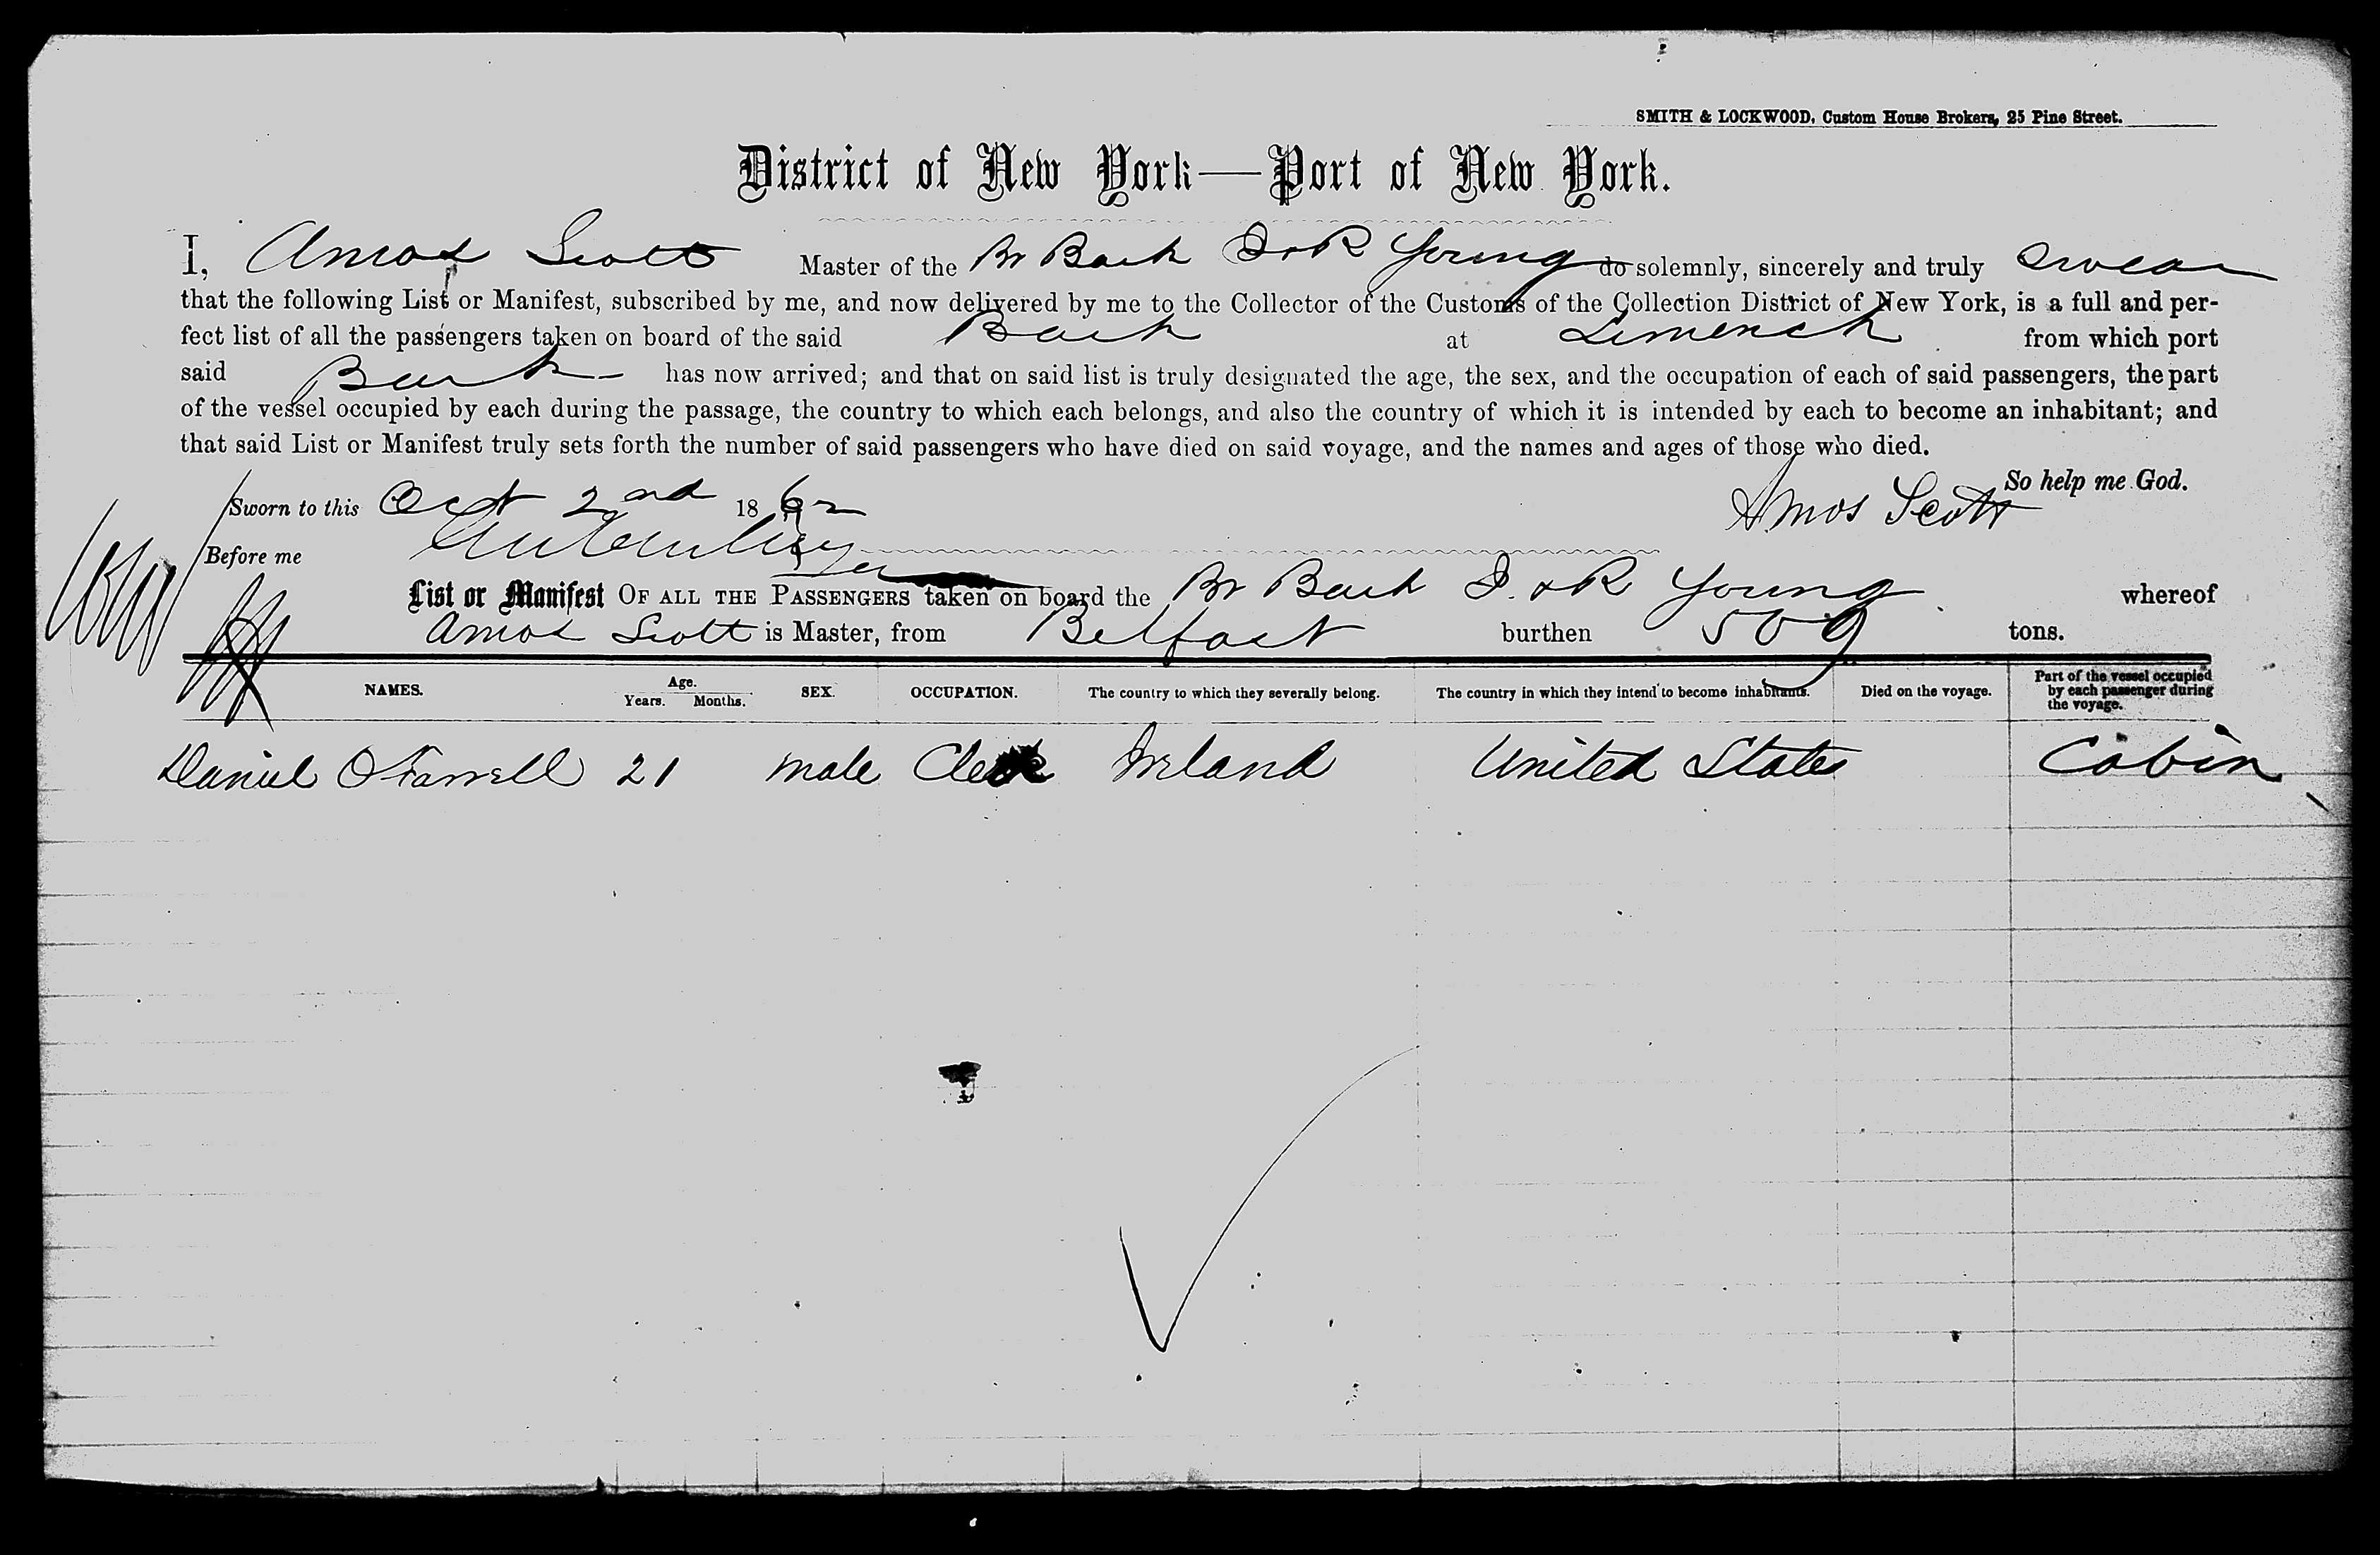 SMITH & LOCKWOOD, Custom House Brokers, 25 Pine Street.
District of New York—Port of New York.
I, Amos Scott Master of the Br Bark I & R Young do solemnly, sincerely and truly swear
that the following List or Manifest, subscribed by me, and now delivered by me to the Collector of the Customs of the Collection District of New York, is a full and per-
fect list of all the passengers taken on board of the said Bark at Limerick from which port
said Bark has now arrived; and that on said list is truly designated the age, the sex, and the occupation of each of said passengers, the part
of the vessel occupied by each during the passage, the country to which each belongs, and also the country of which it is intended by each to become an inhabitant; and
that said List or Manifest truly sets forth the number of said passengers who have died on said voyage, and the names and ages of those who died.
So help me God.
Sworn to this Oct 2nd 1862 Amos Scott
Before me
List or Manifest OF ALL THE PASSENGERS taken on board the Br Bark I. & R Young whereof
Amos Scott is Master, from Belfast burthen 509 tons.
NAMES. Age. Years. Months. SEX. OCCUPATION. The country to which they severally belong. The country in which they intend to become inhabitants. Died on the voyage. Part of the vessel occupied by each passenger during the voyage.
Daniel O Farrell 21 male Clerk Ireland United States Cabin